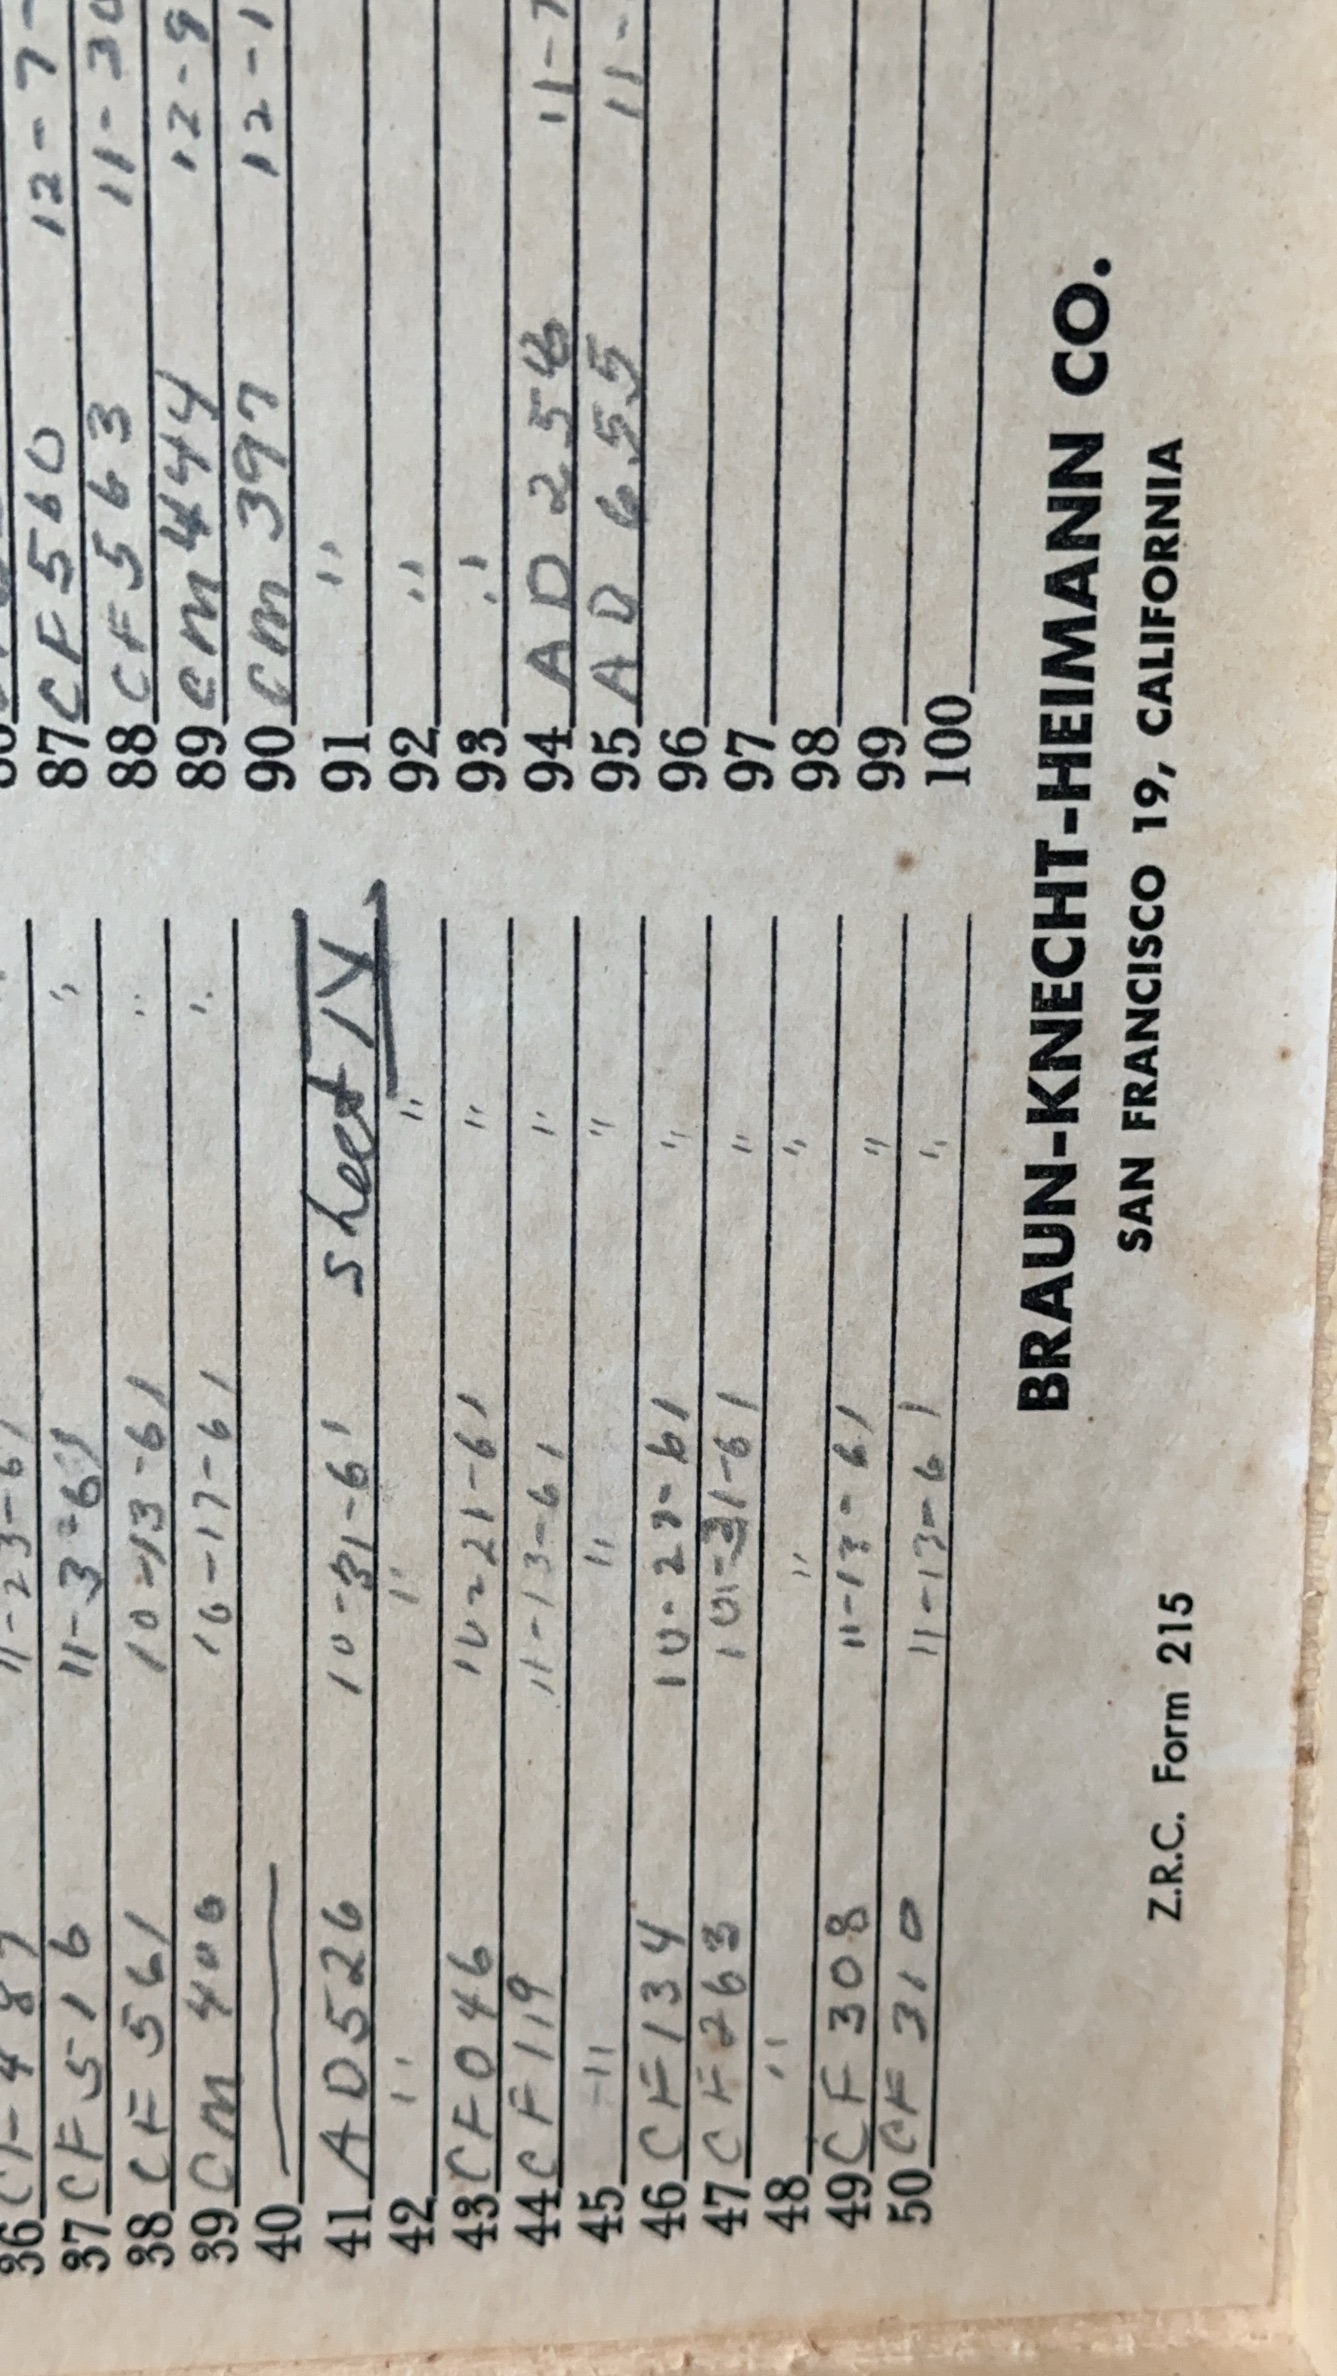 37 CF 516 11-3-61 "
38 CF 561 10-13-61 "
39 CM 400 10-17-61 "
40
41 AD 526 10-31-61 Sheet IV
42 " " "
43 CF 046 10-21-61 "
44 CF 119 11-13-61 "
45 " " "
46 CF 134 10-27-61 "
47 CF 263 10-31-61 "
48 " " "
49 CF 308 11-13-61 "
50 CF 310 11-13-61 "
87 CF 560 12-7-
88 CF 563 11-30
89 CM 444 12-9
90 CM 397 12-1
91 "
92 "
93 "
94 AD 11-7
95 AD 655 11-
96
97
98
99
100
BRAUN-KNECHT-HEIMANN CO.
SAN FRANCISCO 19, CALIFORNIA
Z.R.C. Form 215